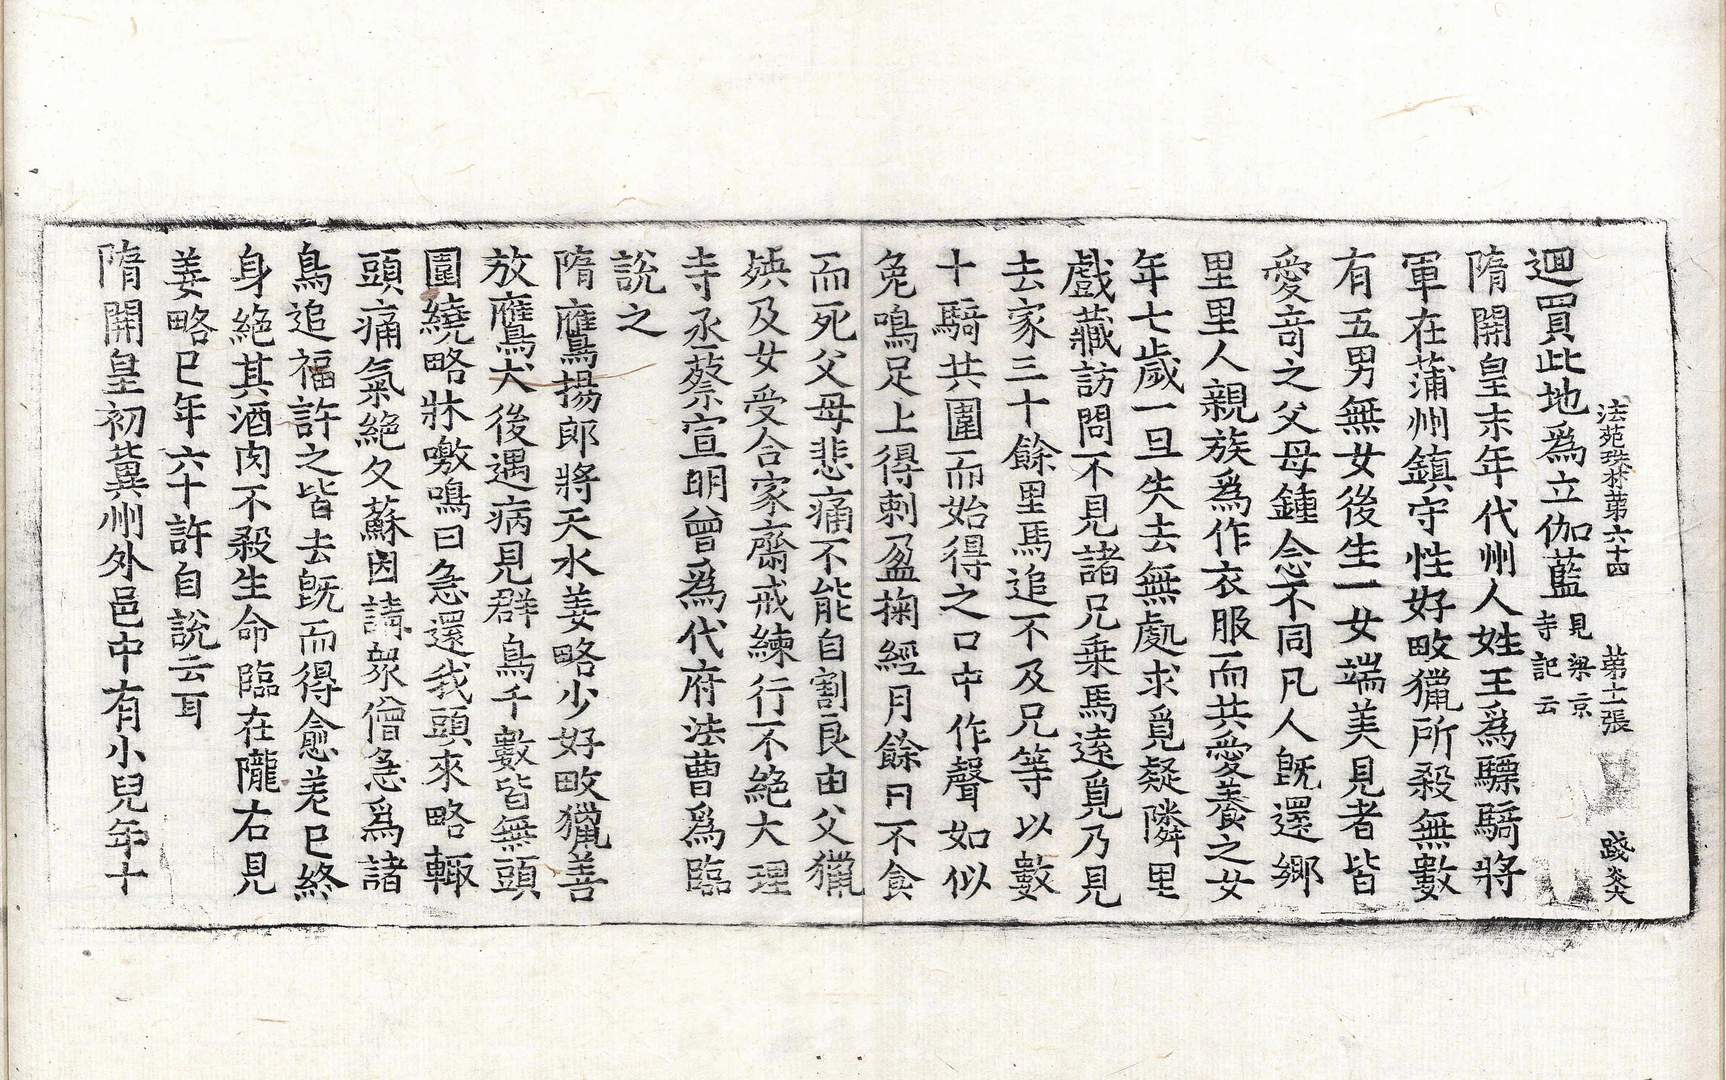 法苑珠林第六十四 第十一張 踐炎
迴買此地爲立伽藍見梁京寺記云
隋開皇末年代州人姓王爲驃騎將
軍在蒲州鎮守性好畋獵所殺無數
有五男無女後生一女端美見者皆
愛奇之父母鍾念不同凡人旣還鄉
里里人親族爲作衣服而共愛養之女
年七歲一旦失去無處求覓疑隣里
戲藏訪問不見諸兄乗馬遠覓乃見
去家三十餘里馬追不及兄等以數
十騎共圍而始得之口中作聲如似
兔鳴足上得刺盈掬經月餘日不食
而死父母悲痛不能自割良由父獵
殃及女受合家齋戒練行不絕大理
寺丞蔡宣明曾爲代府法曹爲臨
說之
隋鷹揚郎將天水姜略少好畋獵善
放鷹犬後遇病見群鳥千數皆無頭
圍繞略牀噭鳴曰急還我頭來略輙
頭痛氣絕久蘇因請衆僧急爲諸
鳥追福許之皆去旣而得愈差已終
身絕其酒肉不殺生命臨在隴右見
姜略已年六十許自說云耳
隋開皇初冀州外邑中有小兒年十